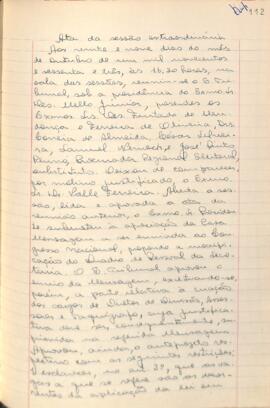 112
Ata da sessão extraordinária
Aos vinte e nove dias do mês
de outubro de um mil novecentos
e sessenta e três, às 16,30 horas, na
sala das sessões, reuniu-se o E. Tri-
bunal, sob a presidência do Exmo. Sr.
Des. Mello Júnior, presentes os
Exmos. Srs. Des. Furtado de Men-
donça e Ferreira de Oliveira, Drs.
Corrêa de Almeida, Cesar Silvei-
ra, Samuel e José Pinto
Renno, Procurador Regional Eleitoral,
substituto. Deixou de comparecer,
por motivo justificado, o Exmo.
Sr. Dr. Valle Ferreira. Aberta a ses-
são, lida e aprovada a ata da
reunião anterior, o Exmo. Sr. Presiden-
te submeteu à aprovação da Casa
Mensagem a ser enviada ao Con-
gresso Nacional, pedindo a modifi-
cação do Quadro de Pessoal da Secre-
taria. O E. Tribunal aprovou o
envio da Mensagem, excetuando-se,
porém, a parte relativa à criação
dos cargos de Diretor de Divisão, Asses-
sor e Taquígrafo, cuja justifica-
tiva deve ser, consequentemente, su-
primida na referida Mensagem.
Aprovou, ainda, o anteprojeto res-
pectivo com as seguintes restrições:
esclarecer, no art. 2º, que as
vagas a que se refere são as decor-
rentes da aplicação da lei em